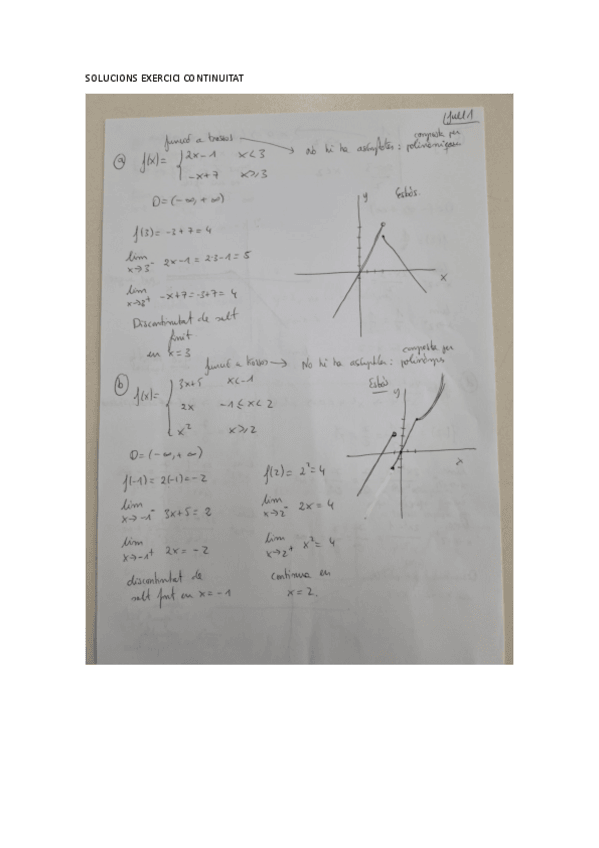 SOLUCIONS EXERCICI CONTINUITAT
full 1
funció a trossos → No hi ha asímptotes: composta per polinòmiques
a) f(x) = { 2x-1 x<3
-x+7 x≥3
D = (-∞, +∞)
Esbós
y
x
f(3) = -3+7 = 4
lim x→3⁻ 2x-1 = 2·3-1 = 5
lim x→3⁺ -x+7 = -3+7 = 4
Discontinuitat de salt
finit
en x=3
funció a trossos → No hi ha asímptotes: composta per polinomis
b) f(x) = { 3x+5 x<-1
2x -1≤x<2
x² x≥2
Esbós
y
x
D = (-∞, +∞)
f(-1) = 2(-1) = -2
lim x→-1⁻ 3x+5 = 2
lim x→-1⁺ 2x = -2
discontinuitat de
salt finit en x=-1
f(2) = 2² = 4
lim x→2⁻ 2x = 4
lim x→2⁺ x² = 4
continua en
x=2.